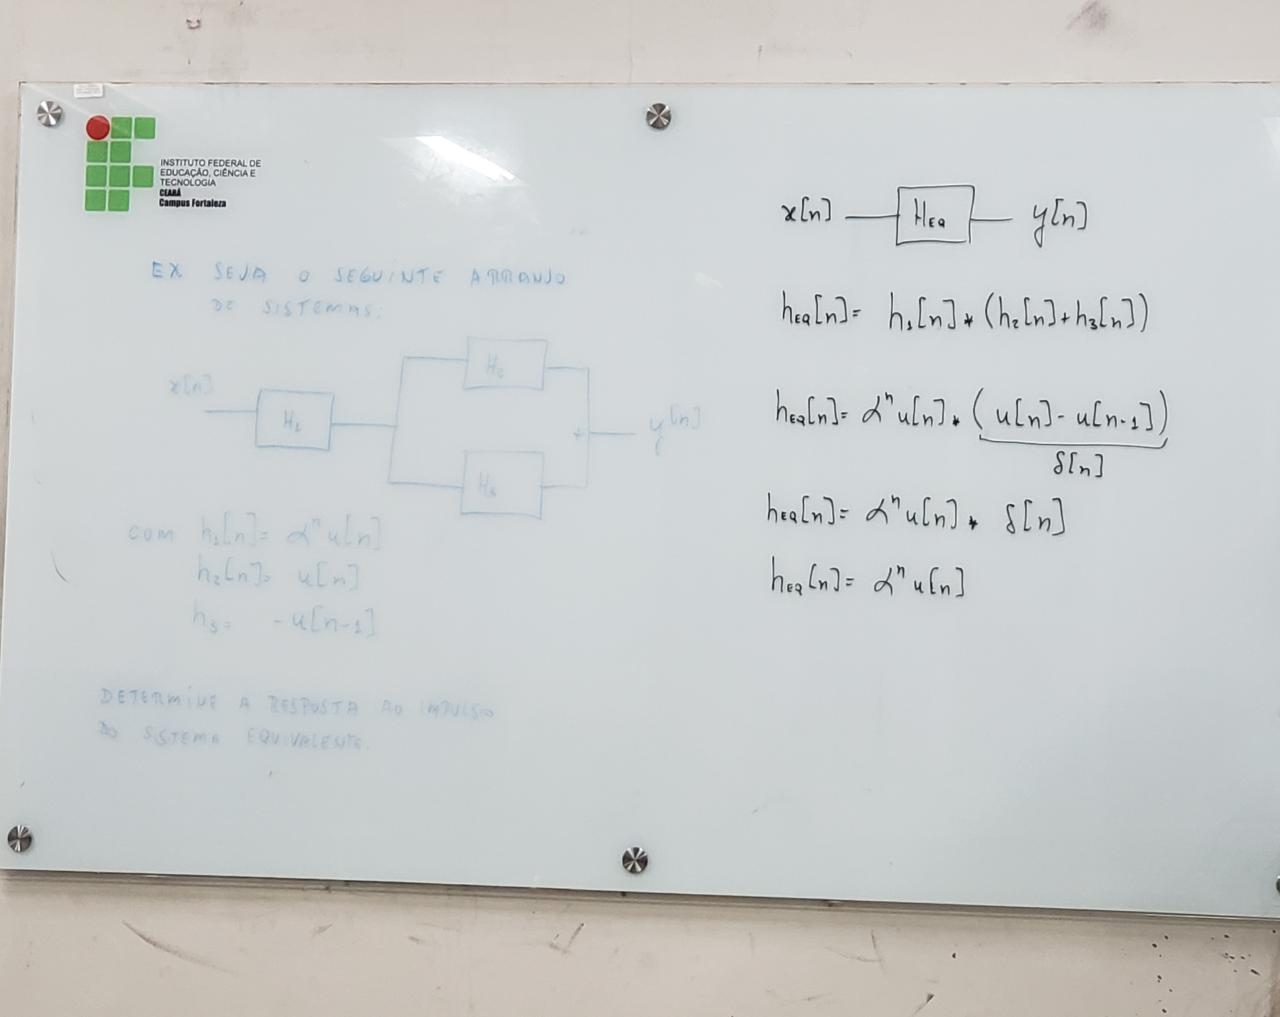 INSTITUTO FEDERAL DE
EDUCAÇÃO, CIÊNCIA E
TECNOLOGIA
CEARÁ
Campus Fortaleza
EX SEJA O SEGUINTE ARRANJO
DE SISTEMAS:
x[n]
H₁
H₂
H₃
+
y[n]
com h₁[n]= αⁿ u[n]
h₂[n]= u[n]
h₃= -u[n-1]
DETERMINE A RESPOSTA AO IMPULSO
DO SISTEMA EQUIVALENTE.
x[n] HEQ y[n]
hEQ[n]= h₁[n] * (h₂[n]+h₃[n])
hEQ[n]= αⁿ u[n] * (u[n]- u[n-1])
δ[n]
hEQ[n]= αⁿ u[n] * δ[n]
hEQ[n]= αⁿ u[n]